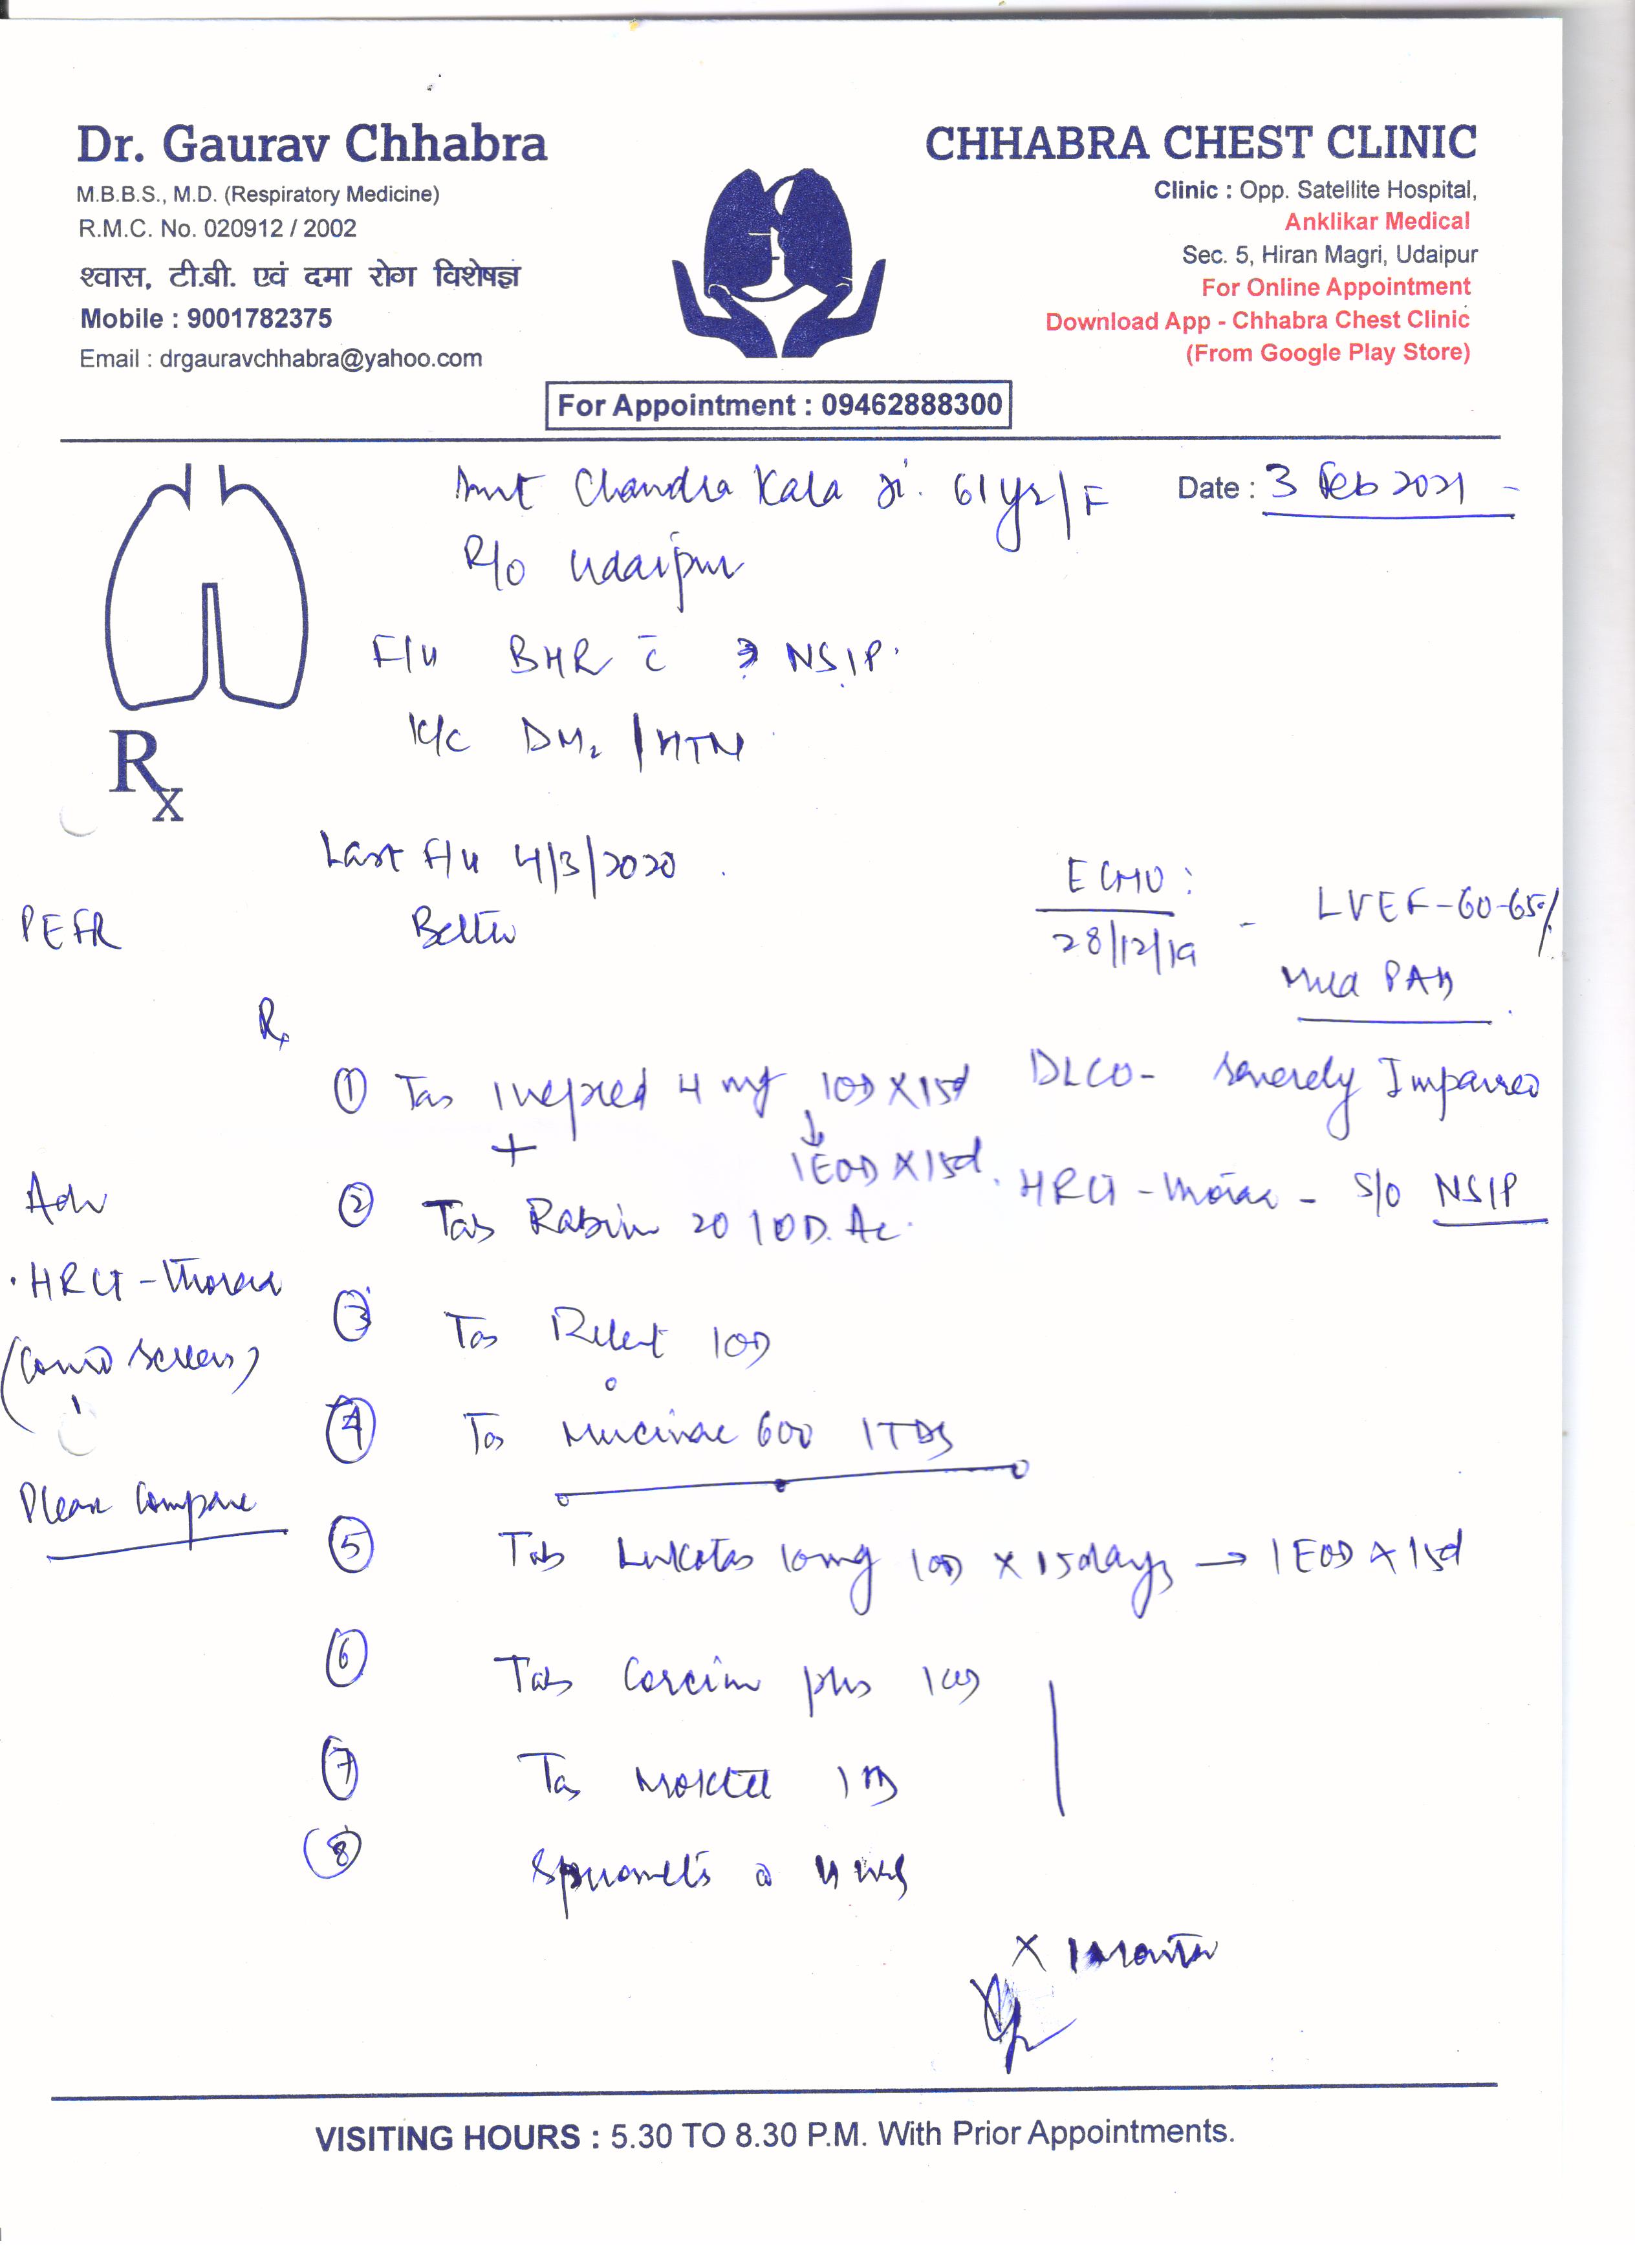 Dr. Gaurav Chhabra
M.B.B.S., M.D. (Respiratory Medicine)
R.M.C. No. 020912 / 2002
श्वास, टी.बी. एवं दमा रोग विशेषज्ञ
Mobile : 9001782375
Email : drgauravchhabra@yahoo.com
CHHABRA CHEST CLINIC
Clinic : Opp. Satellite Hospital,
Anklikar Medical
Sec. 5, Hiran Magri, Udaipur
For Online Appointment
Download App - Chhabra Chest Clinic
(From Google Play Store)
For Appointment : 09462888300
Smt Chandra Kala Ji. 61yr/F
Date : 3 Feb 2021
R/o Udaipur
F/u BHR c̄ ? NSIP.
K/C DM2 / HTN
Rx
Last F/u 4/3/2020.
PEFR
Better
ECHO :
28/12/19
- LVEF-60-65%
Mild PAH
Rx
① Tab 4 mg 1OD X 15d
+
↓
1EOD X 15d.
DLCO- Severely Impaired
HRCT - Thorax - S/o NSIP
② Tab 20 1OD. Ac.
③ Tab Relent 1OD
④ Tab Mucinac 600 1TDS
⑤ Tab 10mg 1OD X 15days → 1EOD X 15d
⑥ Tab plus 1OD
⑦ Tab
⑧ Spirometry
X 1 Month
Adv
. HRCT - Thorax
(Covid Screen)
Please Compare
VISITING HOURS : 5.30 TO 8.30 P.M. With Prior Appointments.